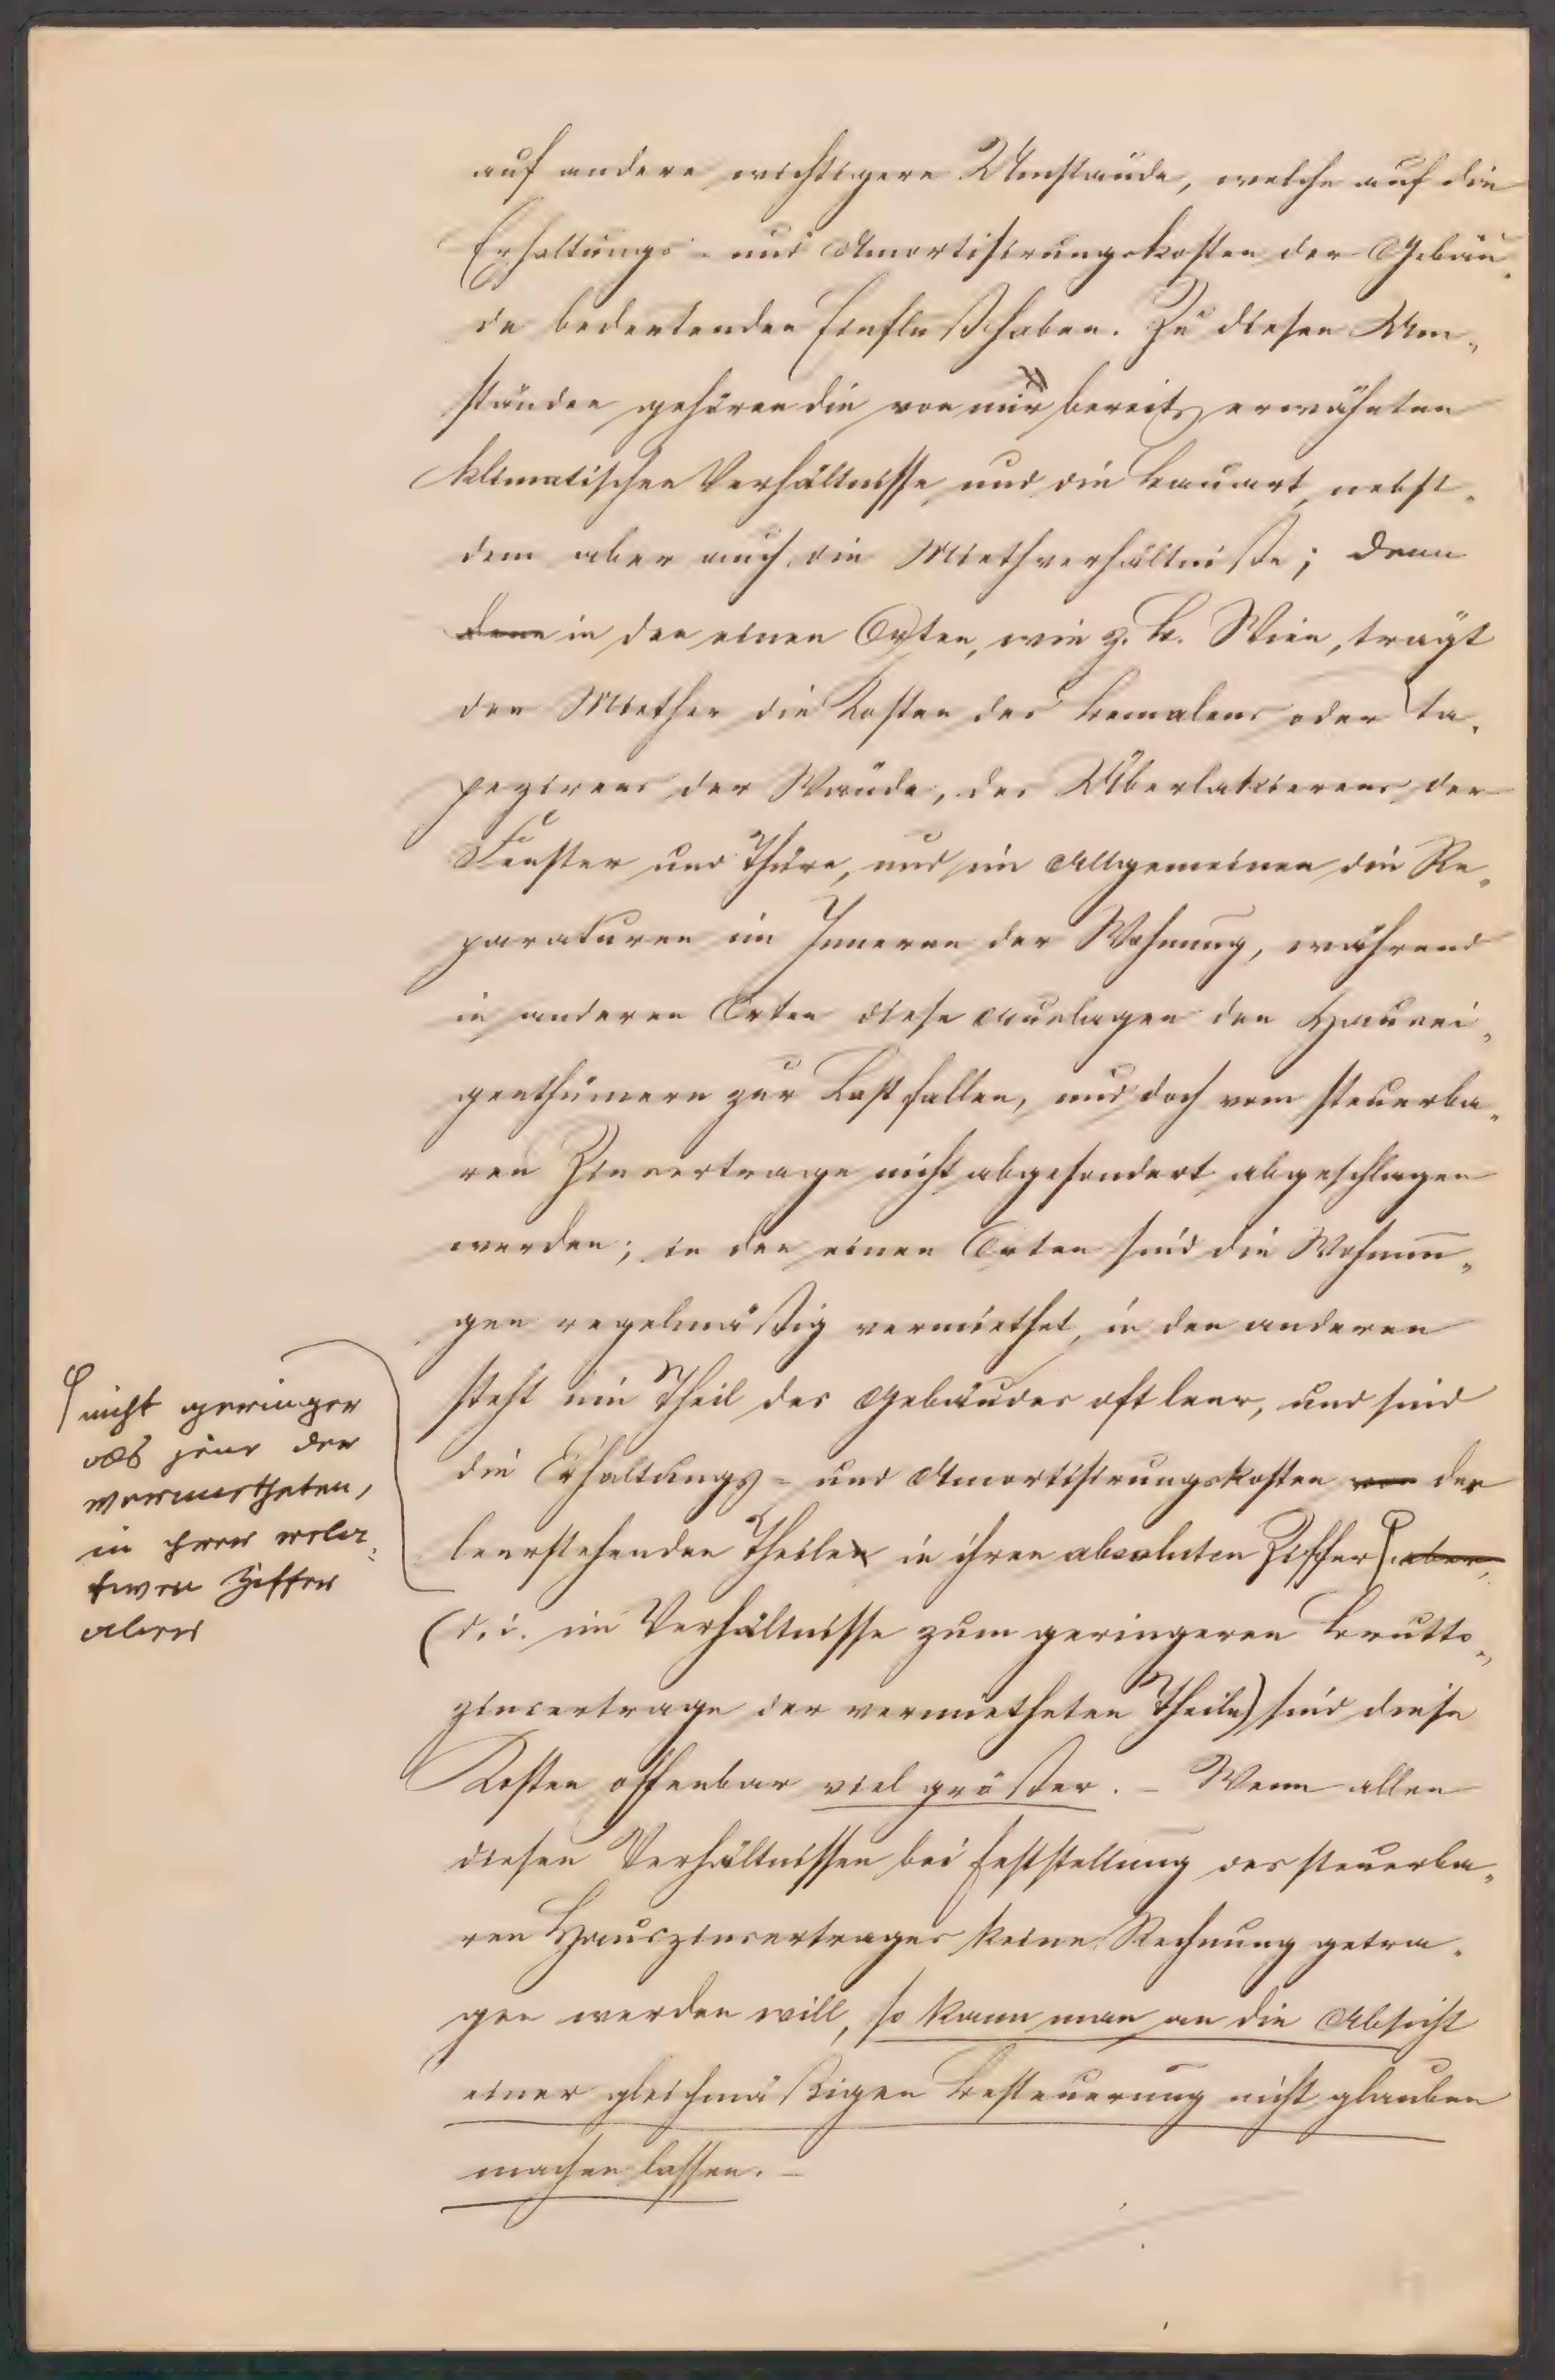 auf andere wichtigere Umstände, welche auf die
Erhaltungs- und Amortisirungskosten der Gebäu„
de bedeutenden Einfluß haben. Zu diesen Um„
ständen gehören die von mir bereits erwähnten
klimatischen Verhältnisse und die Bauart, nebst„
dem aber auch die Miethverhältniße; denn
denn in den einen Orten, wie z. B. Wien, trägt
der Miether die Kosten des Bemalens oder Ta„
pezirens der Wände, des Überlakierens der
Fenster und Thüre, und im Allgemeinen die Re„
paraturen im Inneren der Wohnung, während
in anderen Orten diese Auslagen den Hausei„
genthümern zur Last fallen, und doch vom steuerba„
ren Zinsertrage nicht abgesondert abgeschlagen
werden; in den einen Orten sind die Wohnun„
gen regelmäßig vermiethet, in den anderen
steht ein Theil des Gebäudes oft leer, und sind
die Erhaltungs- und Amortisirungskosten von der
leerstehenden Theilen in ihren absoluten Ziffer aber,
nicht geringer
als jene der
vermietheten,
in ihrer rela„
tiven Ziffer
aber
(d. i. im Verhältnisse zum geringeren Brutto„
zinsertrage der vermietheten Theile) sind diese
Kosten offenbar viel größer. – Wenn allen
diesen Verhältnissen bei Feststellung des steuerba„
ren Hauszinsertrages keine Rechnung getra„
gen werden will, so kann man an die Absicht
einer gleichmäßigen Besteuerung nicht glauben
machen lassen. –